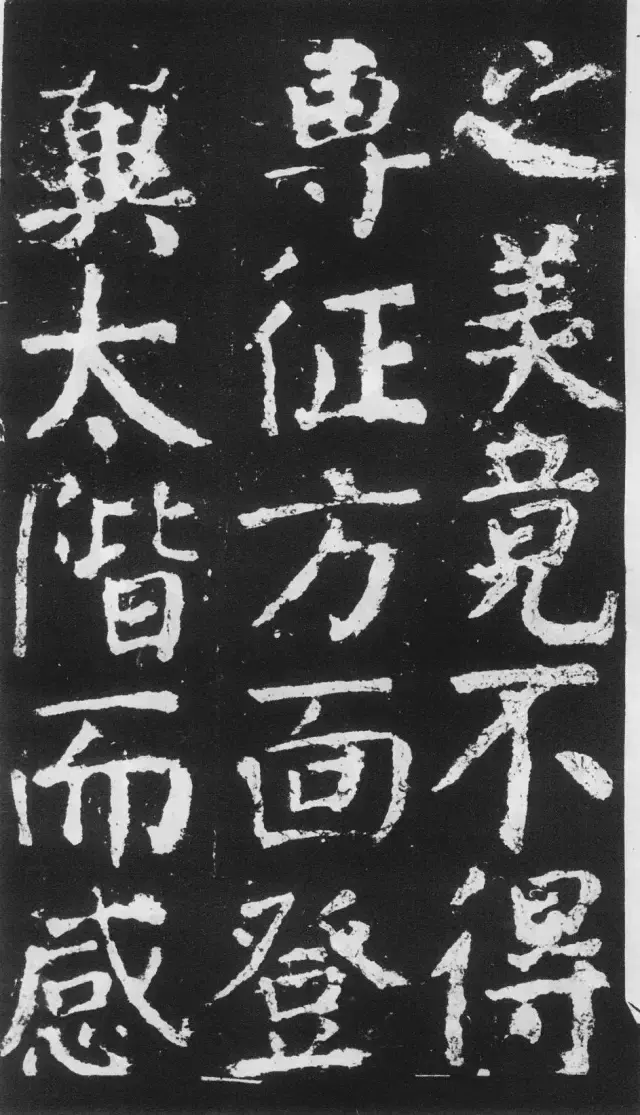 之美竟不得
專征方面登
翼太階而感